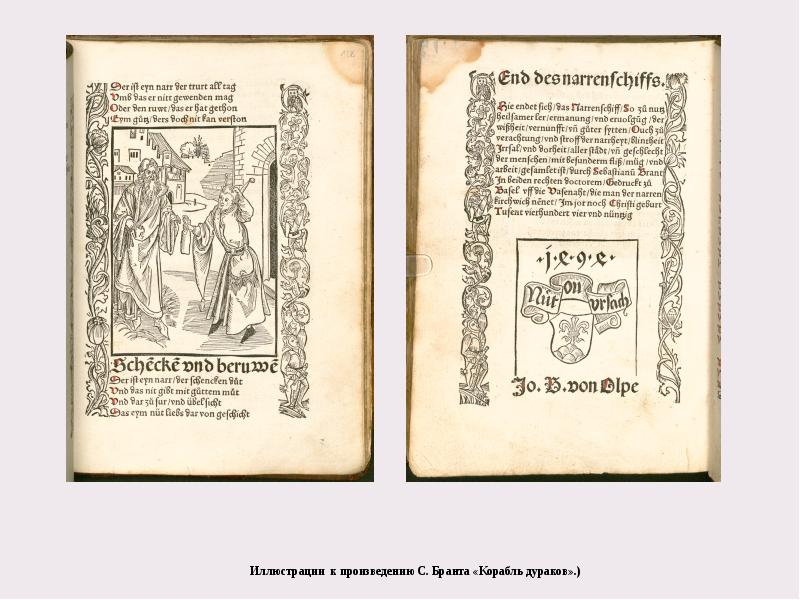 Der ist eyn narr der trurt all tag
Vmb das er nitt gewenden mag
Oder den ruwt/das er hat gethon
Eym gůtz/ders doch nit kan verston
Schēckē vnd beruwē
Der ist eyn narr/der schencken důt
Vnd das nit gibt mit gůttem můt
Vnd dar zů sur/vnd übel sicht
Das eym nüt liebs dar von geschicht
End des narrenschiffs.
Hie endet sich/das Narrenschiff/So zů nutz
heilsamer ler/ermanung/vnd eruolgūg/der
wißheit/vernunfft/vñ gůter sytten/Ouch zů
verachtung/vnd stroff der narrheyt/blintheit
Irrsal/vnd dorheit/aller städt/vñ geschlecht
der menschen/mit besunderm fliß/můg/vnd
arbeit/gesamlet ist/durch Sebastianū Brant
In beiden rechten doctorem/Gedruckt zů
Basel vff die Vasenaht/die man der narren
kirchwich nēnet/Im jor noch Christi geburt
Tusent vierhundert vier vnd nüntzig
Nüt on vrsach
Jo. B. von Olpe
Иллюстрации к произведению С. Бранта «Корабль дураков».)